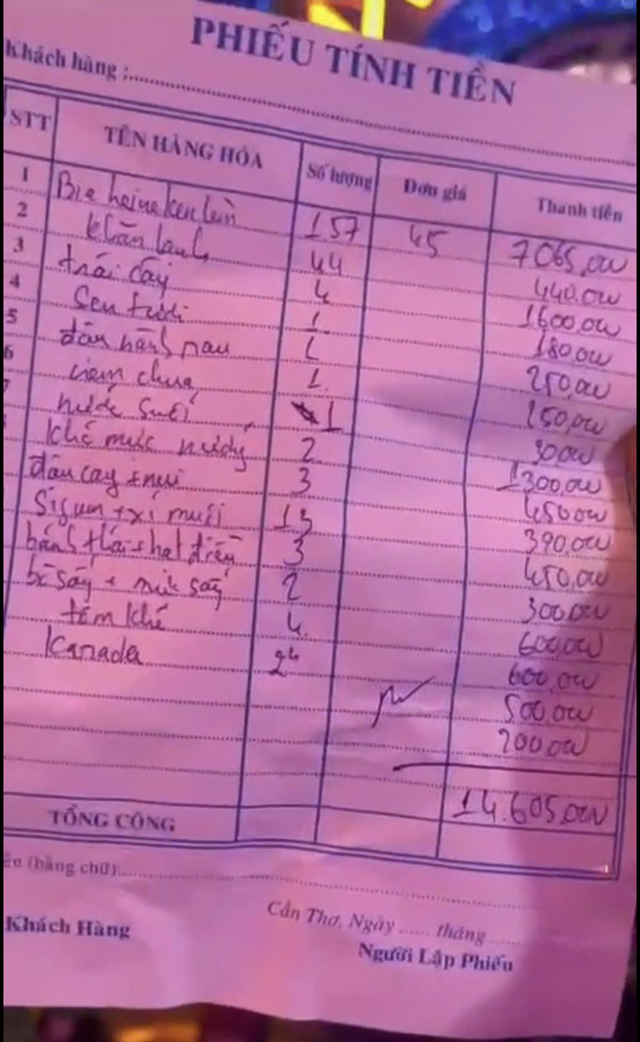 PHIẾU TÍNH TIỀN
Khách hàng :
STT TÊN HÀNG HÓA Số lượng Đơn giá Thành tiền
1 Bia heineken lùn 157 45 7065,000
2 khăn lạnh 44 440.000
3 trái cây 4 1600,000
4 Sen tươi 1 180,000
5 đậu hành nau 1 250,000
6 nem chua 1 150,000
7 nước suối 1 30000
khô mực nướng 2 1300,000
đậu cay + nui 3 450000
Sigum + xí muội 13 390,000
bánh + hạt điều 3 450,000
bò sấy + mít sấy 2 300000
tôm khô 4 600,000
Kanada 24 600,000
500,000
200000
14.605.000
TỔNG CỘNG
(bằng chữ):
Cần Thơ, Ngày ..... tháng
Khách Hàng Người Lập Phiếu